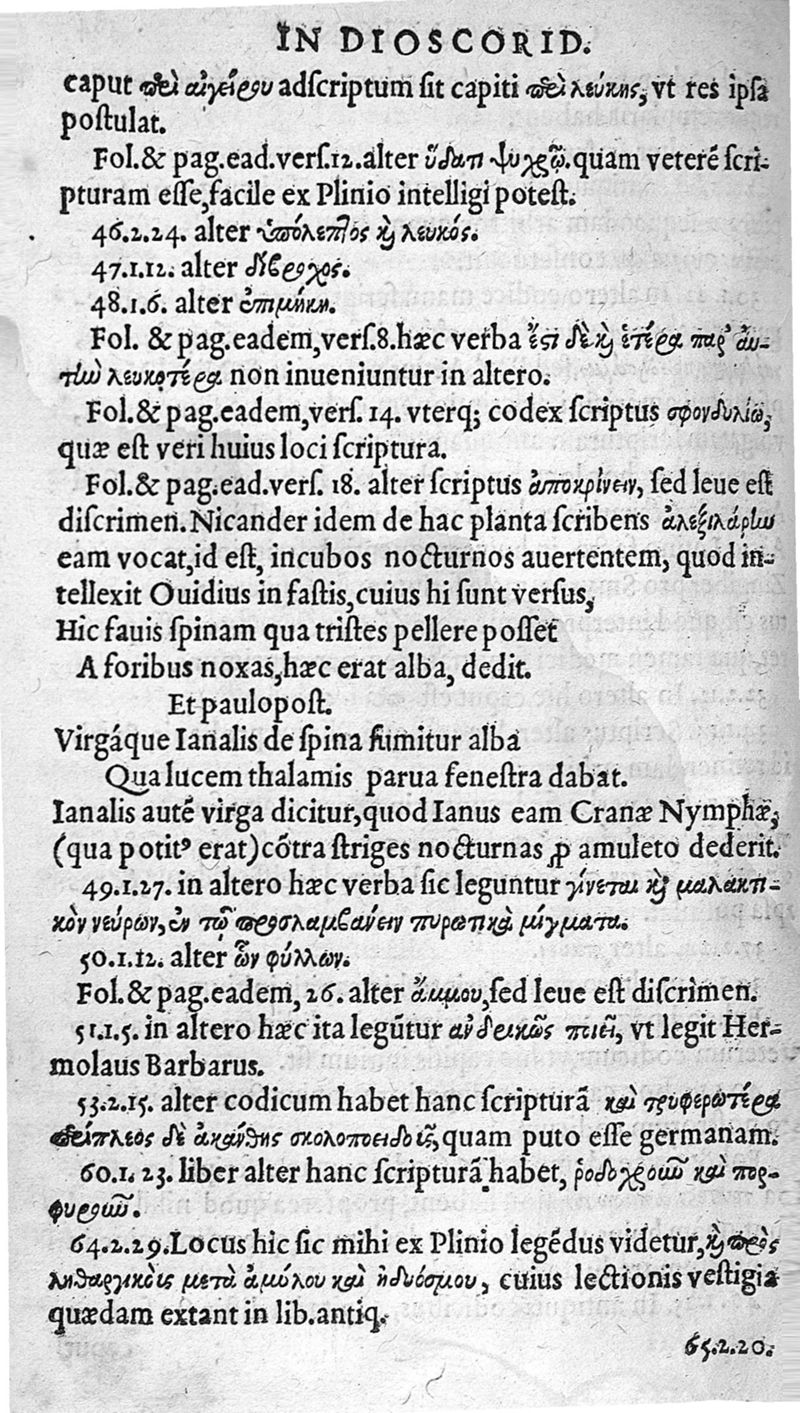 IN DIOSCORID.
caput περὶ αἰγείρου adscriptum sit capiti περὶ λεύκης, vt res ipsa
postulat.
Fol. & pag. ead. vers. 12. alter ὕδατι ψυχρῷ. quam veterẽ scri-
pturam esse, facile ex Plinio intelligi potest.
46.2.24. alter ὑπόλεπτος κỳ λευκός.
47.1.12. alter δίβροχος.
48.1.6. alter ἐπιμήκη.
Fol. & pag. eadem, vers. 8. hæc verba ἔστι δὲ κỳ ἑτέρα παρ' αὐ-
τὴν λευκοτέρα non inueniuntur in altero.
Fol. & pag. eadem, vers. 14. vterq; codex scriptus σφονδυλίῳ,
quæ est veri huius loci scriptura.
Fol. & pag. ead. vers. 18. alter scriptus ἀποκρίνειν, sed leue est
discrimen. Nicander idem de hac planta scribens ἀλεξιλάριω
eam vocat, id est, incubos nocturnos auertentem, quod in-
tellexit Ouidius in fastis, cuius hi sunt versus,
Hic fauis spinam qua tristes pellere posset
A foribus noxas, hæc erat alba, dedit.
Et paulo post.
Virgáque Ianalis de spina sumitur alba
Qua lucem thalamis parua fenestra dabat.
Ianalis autẽ virga dicitur, quod Ianus eam Cranæ Nymphæ,
(qua potitꝰ erat) cõtra striges nocturnas ꝓ amuleto dederit.
49.1.27. in altero hæc verba sic leguntur γίνεται κỳ μαλακτι-
κὸν νεύρων, ἐν τῷ προσλαμβάνειν πυρωτικὰ μίγματα.
50.1.12. alter ὧν φύλλων.
Fol. & pag. eadem, 26. alter ἄμμου, sed leue est discrimen.
51.1.5. in altero hæc ita legũtur ἀνδρικῶς ποιεῖ, vt legit Her-
molaus Barbarus.
53.2.15. alter codicum habet hanc scripturã καὶ τρυφερωτέρα
περίπλεος δὲ ἀκάνθης σκολοποειδοῦς, quam puto esse germanam.
60.1.23. liber alter hanc scripturã habet, ῥοδοχροιῶν καὶ πορ-
φυρῶν.
64.2.29. Locus hic sic mihi ex Plinio legẽdus videtur, κỳ πρὸς
ληθαργικοὺς μετὰ ἀμύλου καὶ ἡδυόσμου, cuius lectionis vestigia
quædam extant in lib. antiq.
65.2.20.